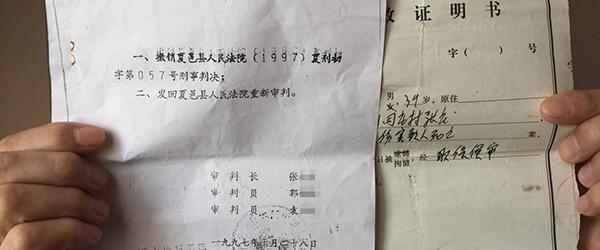 一、撤销夏邑县人民法院(1997)夏刑初
字第057号刑事判决;
二、发回夏邑县人民法院重新审判。
审 判 长 张
审 判 员 郭
审 判 员 袁
一九九七年 月二十八日
证明书
字( )号
男
女
39岁,原住
村张庄
伤害致人死亡 案,
日被逮捕
拘留,经 取保候审